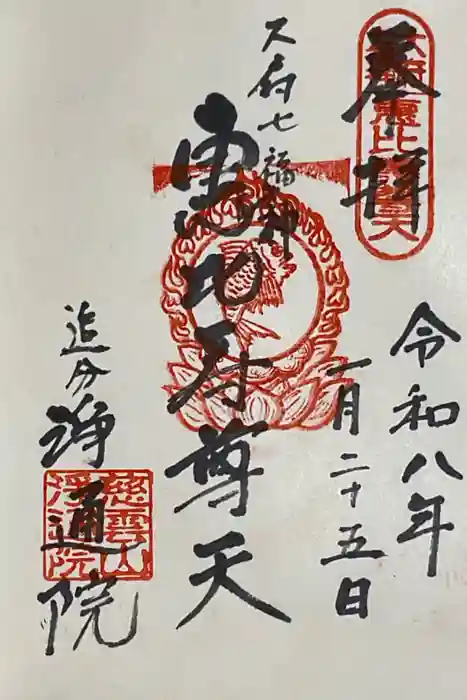 奉拝
令和八年
一月二十五日
大府七福神
恵比寿尊天
追分
浄通院
慈雲山
浄通院